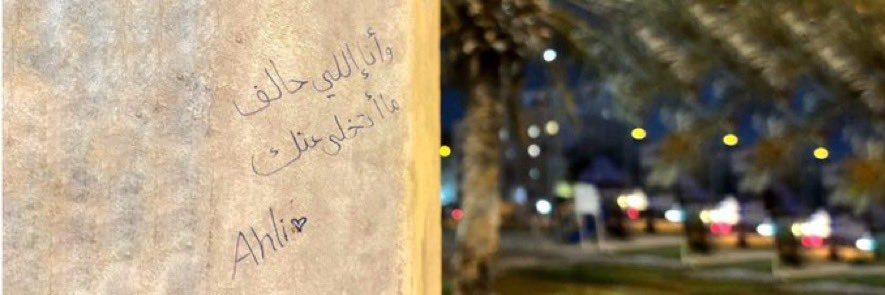 وأنا اللي حالف
ما أتخلى عنك
Ahli